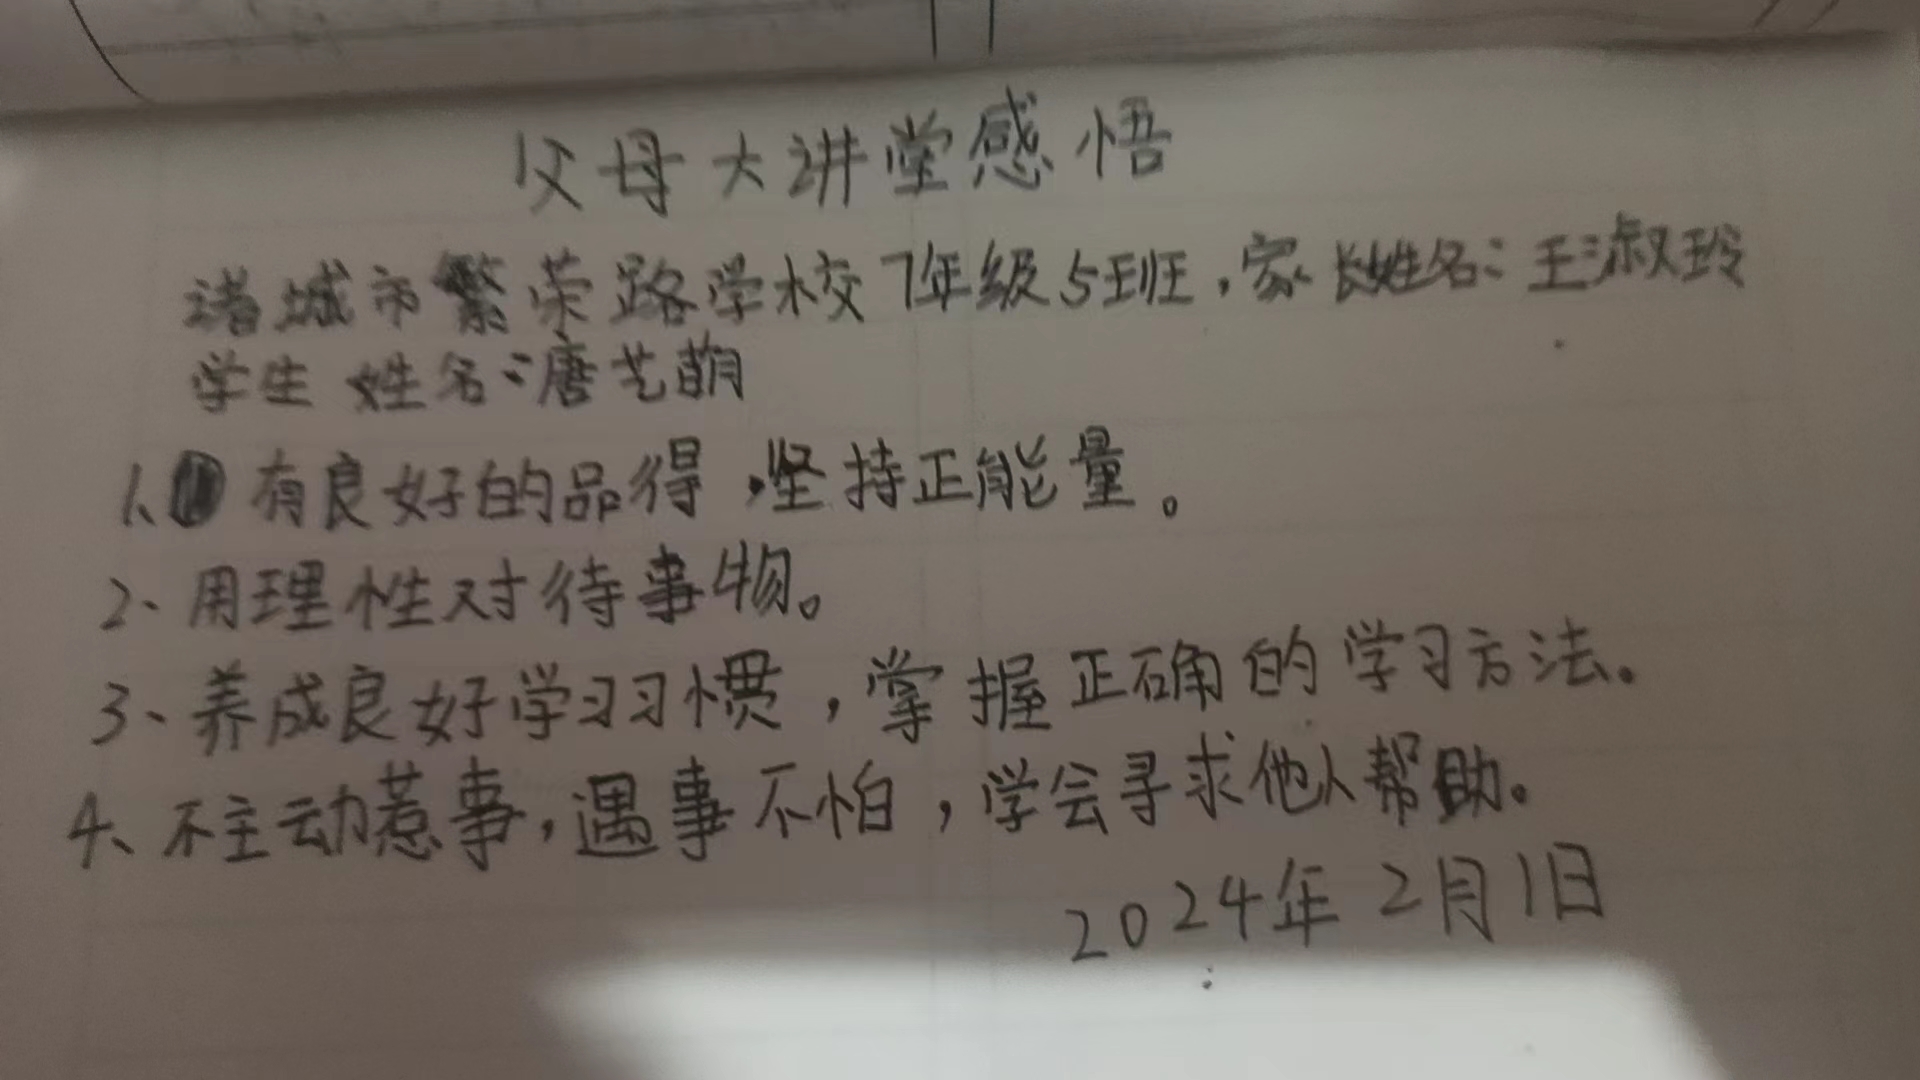 父母大讲堂感悟
诸城市繁荣路学校7年级5班,家长姓名:王淑玲
学生姓名:唐艺萌
1、有良好的品得,坚持正能量。
2、用理性对待事物。
3、养成良好学习习惯,掌握正确的学习方法。
4、不主动惹事,遇事不怕,学会寻求他人帮助。
2024年2月1日